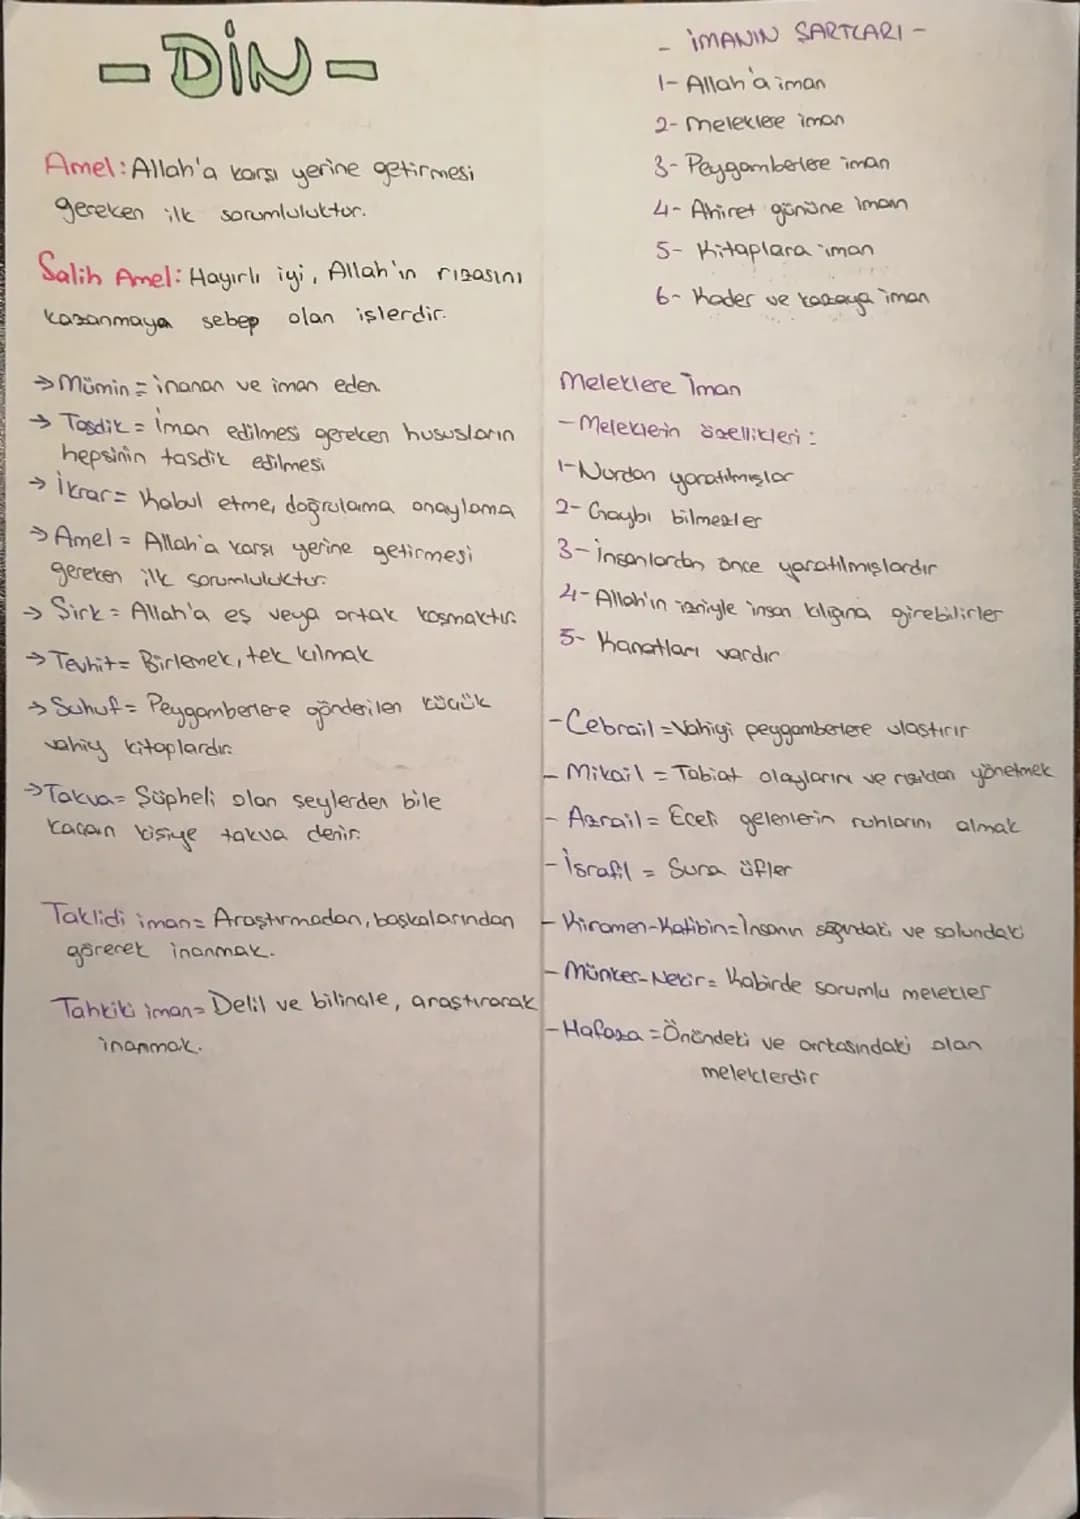 - DİN -
Amel: Allah'a karşı yerine getirmesi
gereken ilk sorumluluktur.
Salih Amel: Hayırlı iyi, Allah'ın rızasını
kazanmaya sebep olan işlerdir.
→ Mümin = inanan ve iman eden.
→ Tasdik = İman edilmesi gereken hususların
hepsinin tasdik edilmesi
→ İkrar = Kabul etme, doğrulama onaylama
→ Amel = Allah'a karşı yerine getirmesi
gereken ilk sorumluluktur.
→ Şirk = Allah'a eş veya ortak koşmaktır.
→ Tevhit = Birlemek, tek kılmak
→ Suhuf = Peygamberlere gönderilen küçük
vahiy kitaplardır.
→ Takva = Şüpheli olan şeylerden bile
kaçan kişiye takva denir.
Taklidi iman = Araştırmadan, başkalarından
görerek inanmak.
Tahkiki iman = Delil ve bilinçle, araştırarak
inanmak.
- İMANIN ŞARTLARI -
1- Allah'a iman
2- Meleklere iman
3- Peygamberlere iman
4- Ahiret gününe iman
5- Kitaplara iman
6- Kader ve kazaya iman
Meleklere İman
- Meleklerin özellikleri :
1- Nurdan yaratılmışlar
2- Gaybı bilmezler
3- İnsanlardan önce yaratılmışlardır
4- Allah'ın izniyle insan kılığına girebilirler
5- Kanatları vardır
- Cebrail = Vahiyi peygamberlere ulaştırır
- Mikail = Tabiat olaylarını ve rızıkları yönetmek
- Azrail = Eceli gelenlerin ruhlarını almak
- İsrafil = Sura üfler
- Kiramen-Katibin = İnsanın sağındaki ve solundaki
- Münker-Nekir = Kabirde sorumlu melekler
- Hafaza = Önündeki ve arkasındaki olan
meleklerdir